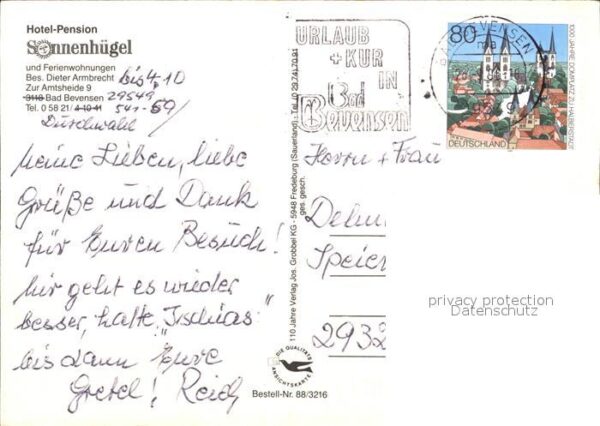 Hotel-Pension
Sonnenhügel
und Ferienwohnungen
Bes. Dieter Armbrecht bis 4.10
Zur Amtsheide 9
3118 Bad Bevensen 29549
Tel. 0 58 21/ 4 10 41 541-59/
Durchwahl
Meine Lieben, liebe
Grüße und Dank
für Euren Besuch!
Mir geht es wieder
besser, hatte "Ischias"
bis dann Eure
Gretel! Reich
110 Jahre Verlag Jos. Grobbel KG - 5948 Fredeburg (Sauerland) - Tel. (0 29 74) 70 91
ges. gesch.
DIE QUALITÄTS
ANSICHTSKARTE
Bestell-Nr. 88/3216
URLAUB
+ KUR
IN
Bad
Bevensen
BAD BEVENSEN
80
1000 JAHRE DOMPLATZ ZU HALBERSTADT
DEUTSCHLAND
Herrn + Frau
Delm
Speier
2932
privacy protection
Datenschutz